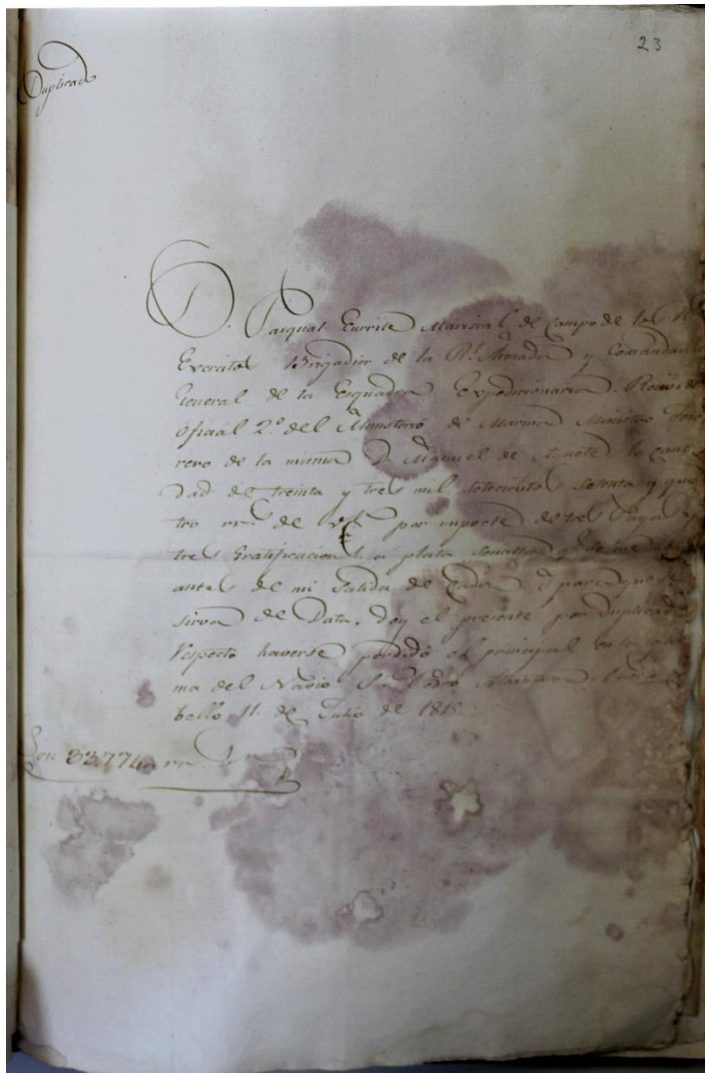 23
Duplicado
D. Pasqual Enrile Mariscal de Campo de los R.s
Exercitos Brigadier de la R.l Armada y Comandante
General de la Esquadra Expedicionaria. Recivi del
Oficial 2.º del Ministerio de Marina Ministro Teso
rero de la misma D. Miguel de la canti
dad de treinta y tres mil setecientos setenta y qua
tro rr.s de v.n por importe de tres Pagas y
tres Gratificaciones a plata sencilla
antes de mi salida de Cadiz y para que le
sirva de Data, doy el presente por duplicado
respecto haverse perdido el principal en la que
ma del Navio S.n Pedro Puerto
bello 11. de Julio de 1815.
Son 33.774 rr. v.n